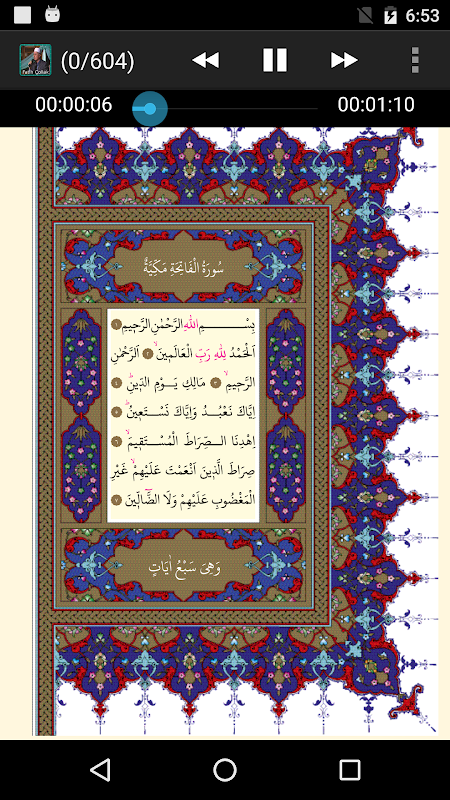 6:53
Fatih Çollak
(0/604)
00:00:06
00:01:10
سُورَةُ الْفَاتِحَةِ مَكِّيَّةٌ
بِسْــــمِ اللّٰهِ الرَّحْمٰنِ الرَّحِيمِ ١
اَلْحَمْدُ لِلّٰهِ رَبِّ الْعَالَمِينَۙ ٢ اَلرَّحْمٰنِ
الرَّحِيمِۙ ٣ مَالِكِ يَوْمِ الدِّينِۜ ٤
اِيَّاكَ نَعْبُدُ وَاِيَّاكَ نَسْتَعِينُۜ ٥
اِهْدِنَا الصِّرَاطَ الْمُسْتَقِيمَۙ ٦
صِرَاطَ الَّذِينَ اَنْعَمْتَ عَلَيْهِمْۙ غَيْرِ
الْمَغْضُوبِ عَلَيْهِمْ وَلَا الضَّٓالِّينَ ٧
وَهِىَ سَبْعُ اٰيَاتٍ